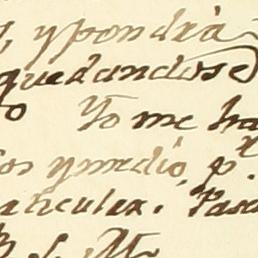 , y pondrà
quedandose
o Yo me ha
os y medio, p.r
aticular. Pas